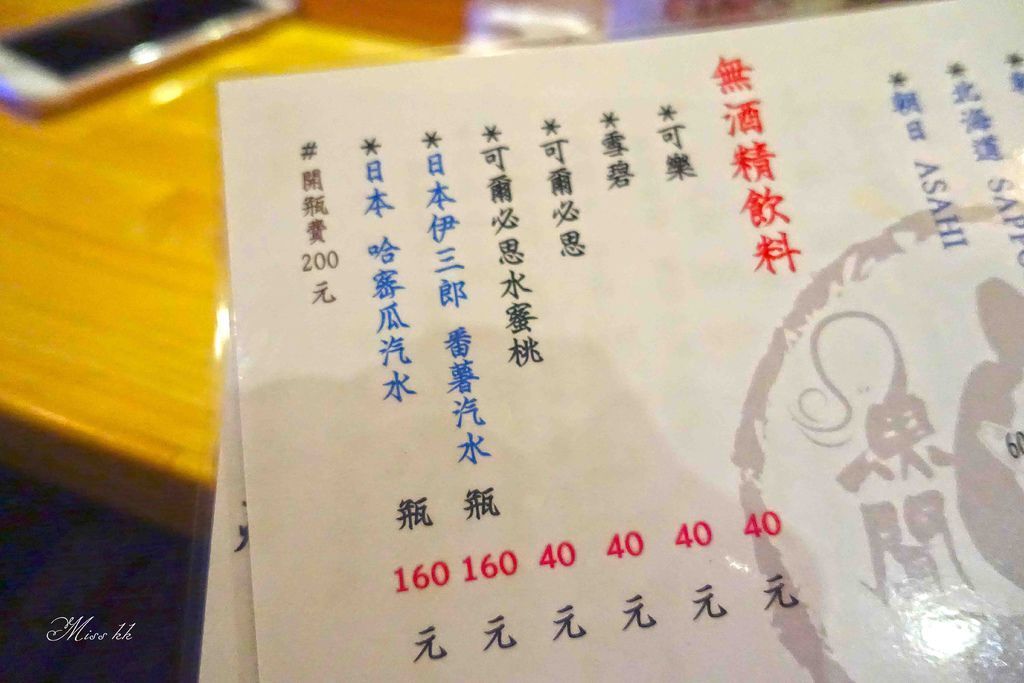 *朝日 ASAHI
無酒精飲料
*可樂 40元
*雪碧 40元
*可爾必思 40元
*可爾必思水蜜桃 40元
*日本伊三郎 番薯汽水 瓶 160元
*日本 哈密瓜汽水 瓶 160元
#開瓶費200元
Miss kk